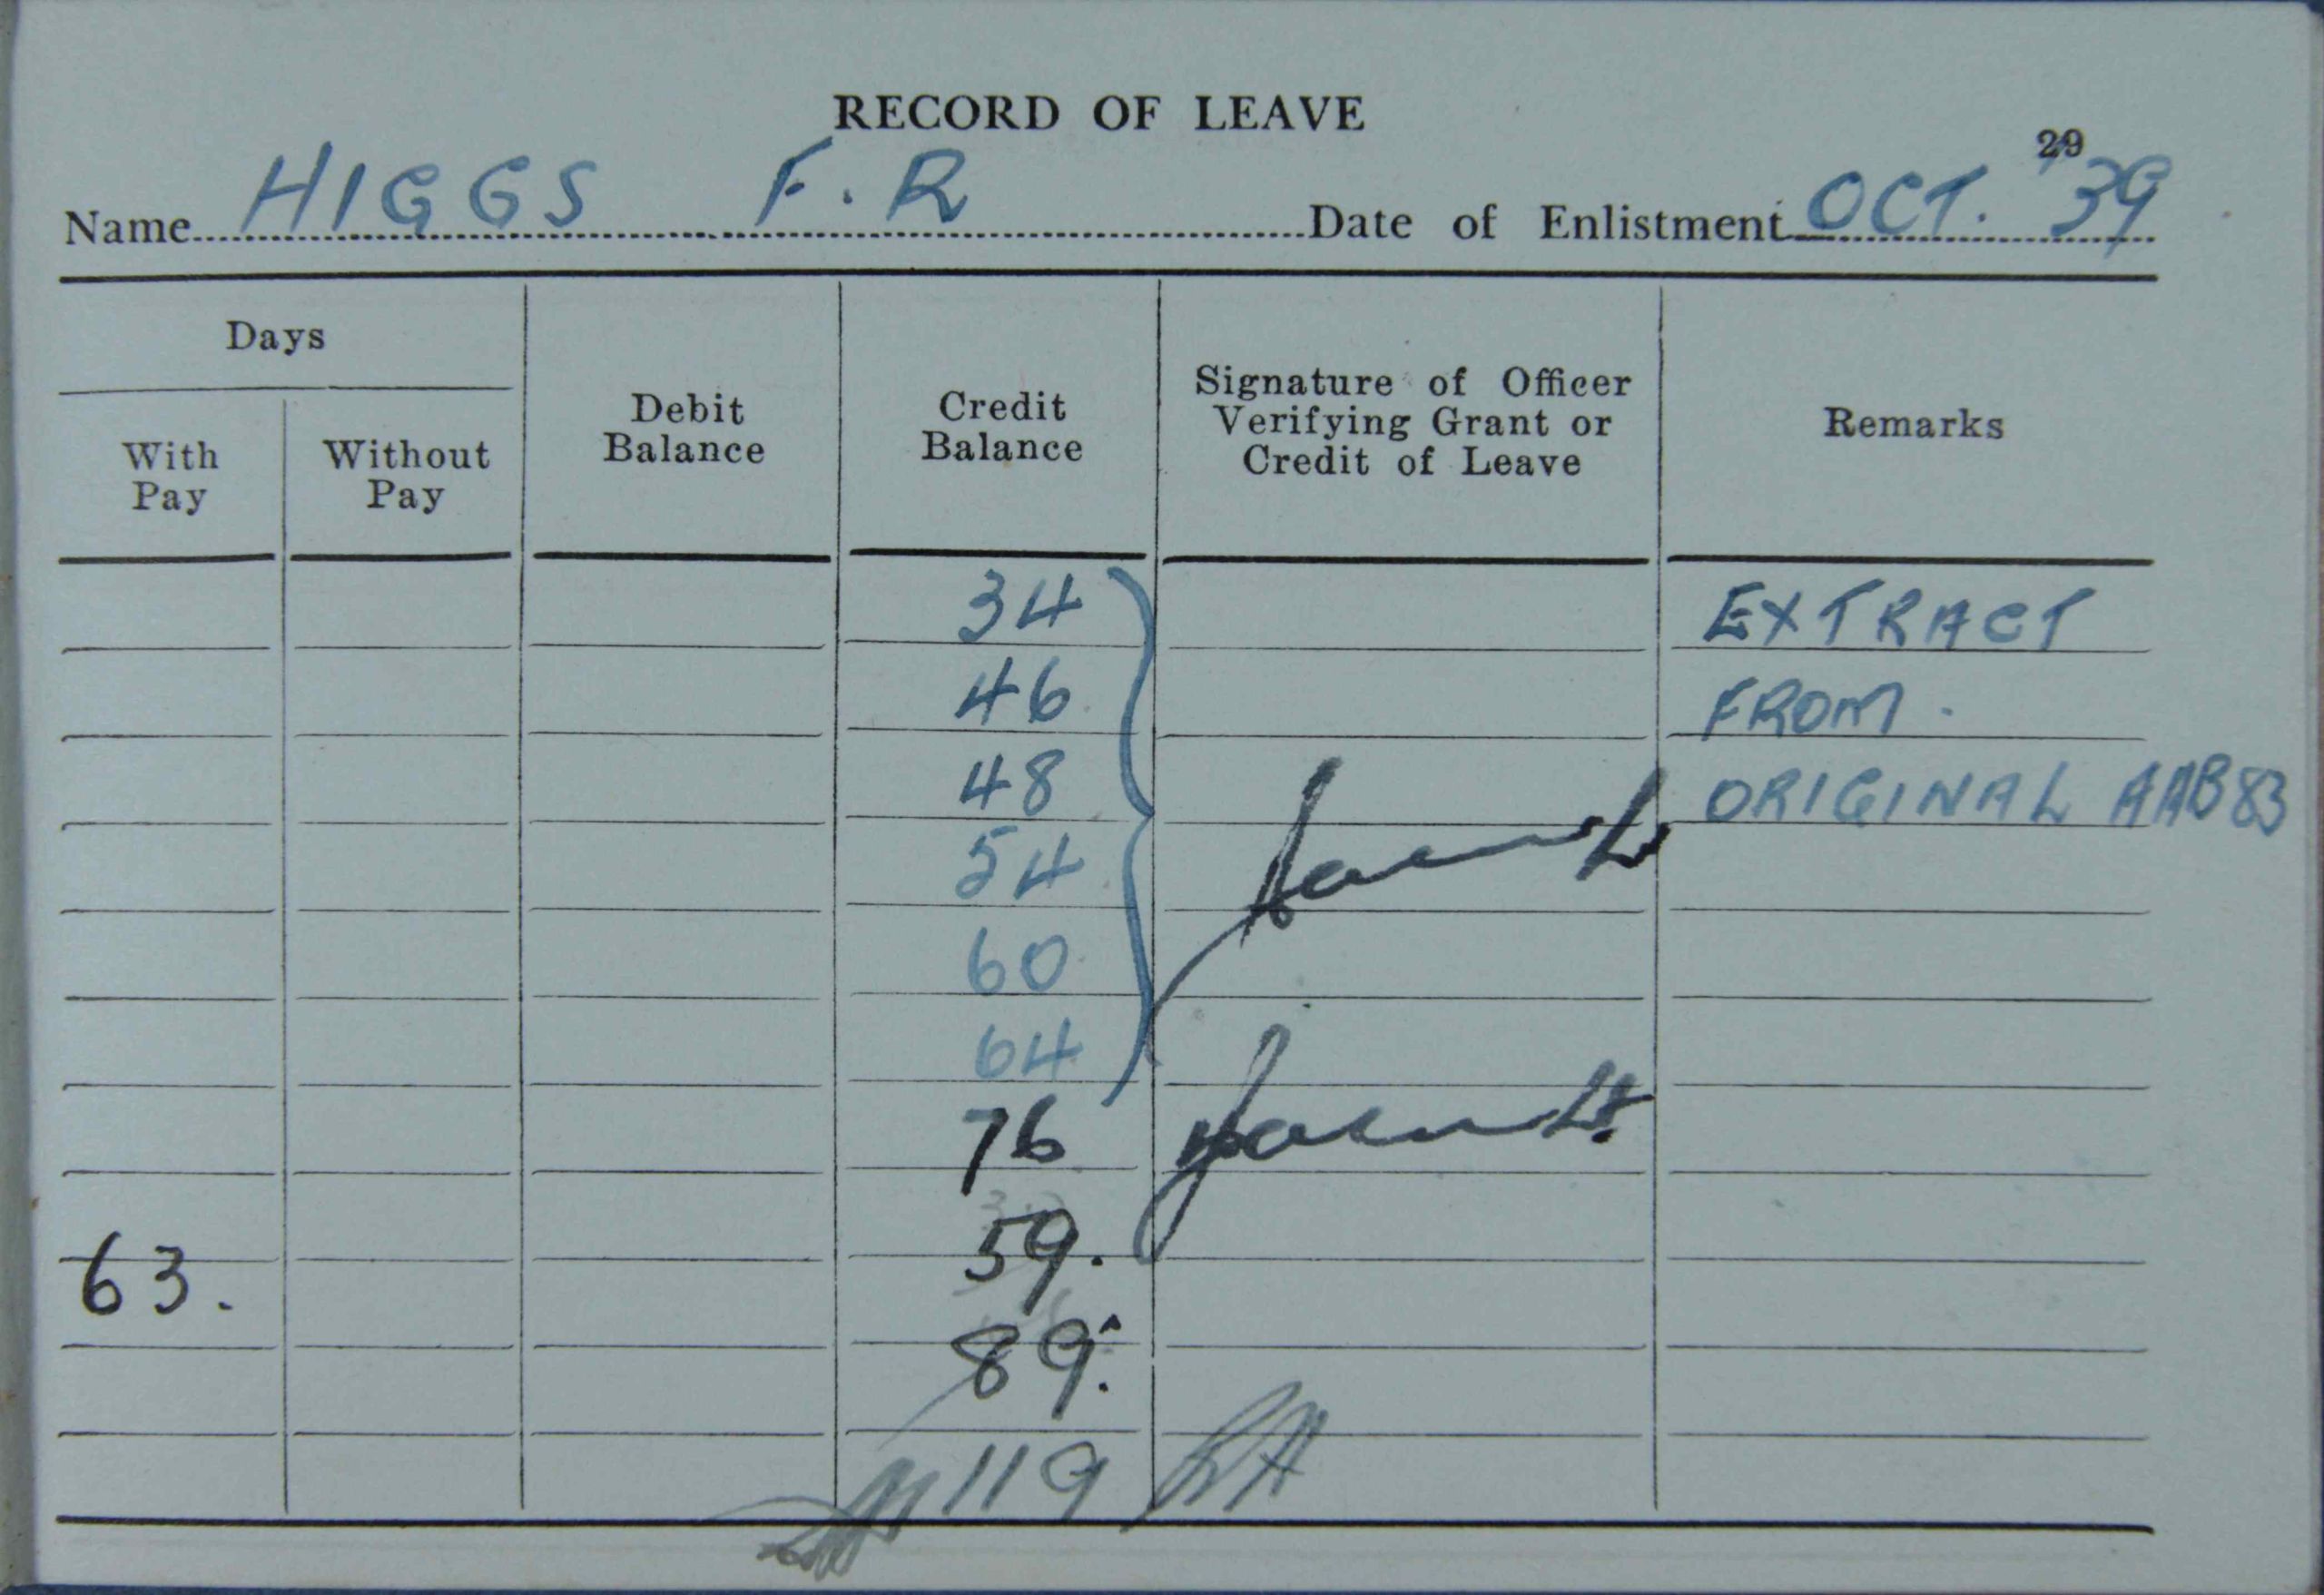 RECORD OF LEAVE
29
Name HIGGS F.R Date of Enlistment OCT. '39
Days
With Pay
Without Pay
Debit Balance
Credit Balance
Signature of Officer Verifying Grant or Credit of Leave
Remarks
34 EXTRACT
46 FROM.
48 ORIGINAL AAB83
54 Lt
60
64
76 Lt.
59.
63.
89.
119